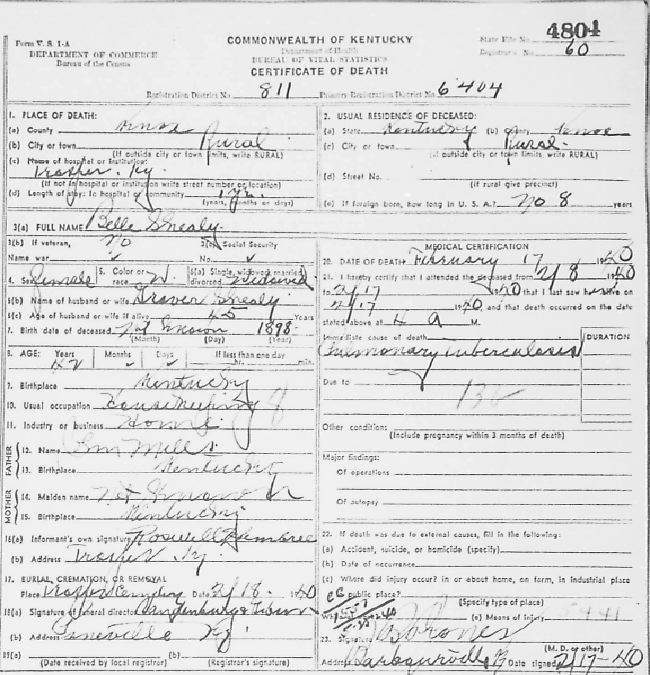 Form V. S. 1-A
DEPARTMENT OF COMMERCE
Bureau of the Census
COMMONWEALTH OF KENTUCKY
Department of Health
BUREAU OF VITAL STATISTICS
CERTIFICATE OF DEATH
State File No. 4804
Registrar's No. 60
Registration District No. 811 Primary Registration District No. 6404
1. PLACE OF DEATH:
(a) County Knox
(b) City or town Rural
(If outside city or town limits, write RURAL)
(c) Name of hospital or institution:
Trosper, Ky.
(If not in hospital or institution write street number or location)
(d) Length of stay: In hospital or community
(years, months or days)
2. USUAL RESIDENCE OF DECEASED:
(a) State Kentucky (b) County Knox
(c) City or town Rural
(If outside city or town limits, write RURAL)
(d) Street No.
(If rural give precinct)
(e) If foreign born, how long in U. S. A.? No 8 years
3(a) FULL NAME Belle Snealy
3(b) If veteran, No
Name war
3(c) Social Security
No.
4. Sex Female 5. Color or race W. 6(a) Single, widowed, married, divorced Widowed
6(b) Name of husband or wife Grover Snealy
6(c) Age of husband or wife if alive 45 Years
7. Birth date of deceased Not Known 1898
(Month) (Day) (Year)
8. AGE: Years 42 Months Days If less than one day
hr. min.
9. Birthplace Kentucky
10. Usual occupation Housekeeping
11. Industry or business Home
FATHER
12. Name Mills
13. Birthplace Kentucky
MOTHER
14. Maiden name Not Known
15. Birthplace Kentucky
16(a) Informant's own signature Roswell Hembree
(b) Address Trosper, Ky.
17. BURIAL, CREMATION, OR REMOVAL
Place Trosper Cemetery Date 2/18 1940
18(a) Signature of funeral director
(b) Address Pineville Ky
19(a) (b)
(Date received by local registrar) (Registrar's signature)
MEDICAL CERTIFICATION
20. DATE OF DEATH February 17 1940
21. I hereby certify that I attended the deceased from 2/8 1940
to 2/17 1940 that I last saw
2/17 1940 and that death occurred on the date
stated above at 4 A M.
Immediate cause of death
Pulmonary tuberculosis
DURATION
Due to
Other conditions
(Include pregnancy within 3 months of death)
Major findings:
Of operations
Of autopsy
22. If death was due to external causes, fill in the following:
(a) Accident, suicide, or homicide (specify)
(b) Date of occurrence
(c) Where did injury occur? in or about home, on farm, in industrial place
public place?
(Specify type of place)
(e) Means of injury
23. Signature
(M. D. or other)
Address Barbourville Ky Date signed 2/17-40